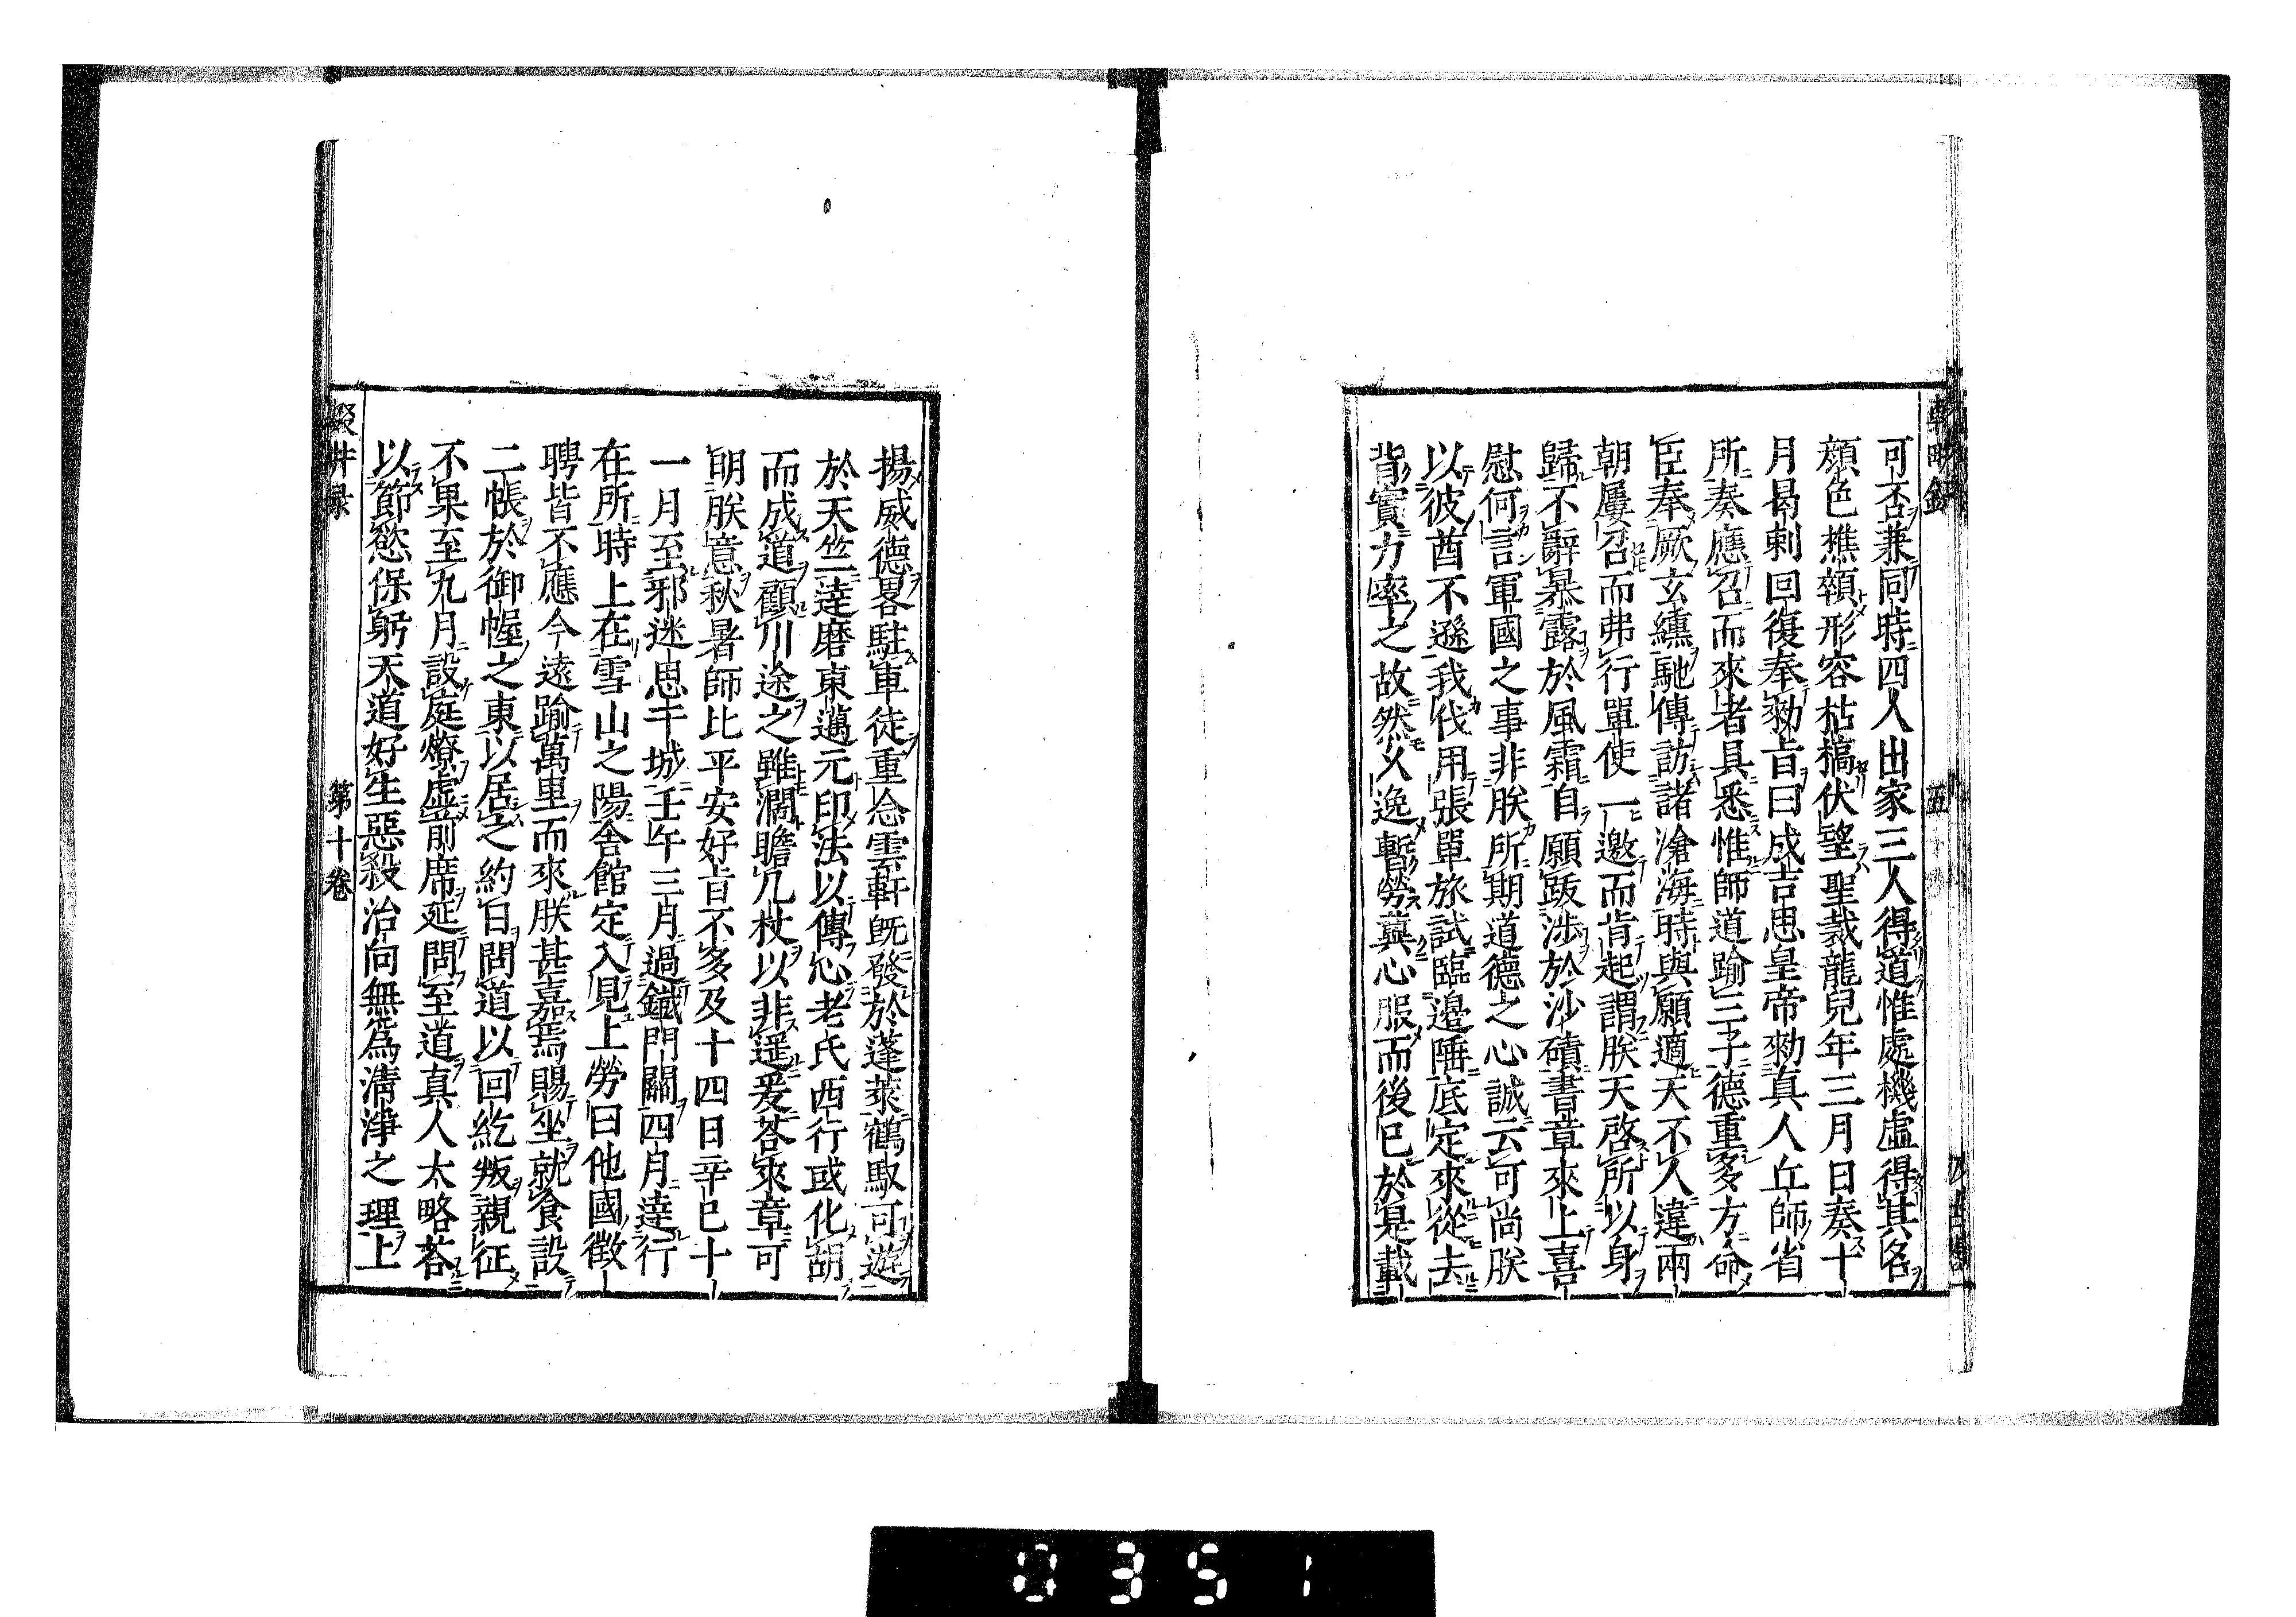 可否兼同時四人出家三人得道惟處機虛得其名
顏色憔顇形容枯槁伏望聖裁龍兒年三月日奏十
月曷剌回復奉勑旨曰成吉思皇帝勑真人丘師省
所奏應召而來者具悉惟師道踰三子德重多方命
臣奉厥玄纁馳傳訪諸滄海時與願適天不人違兩
朝屢召而弗行單使一邀而肯起謂朕天啓所以身
歸不辭暴露於風霜自願跋涉於沙磧書章來上喜
慰何言軍國之事非朕所期道德之心誠云可尚朕
以彼酋不遜我伐用張單旅試臨邊陲底定來從去
背實力率之故然久逸暫勞冀心服而後已於是載
揚威德畧駐車徒重念雲軒旣發於蓬萊鶴馭可遊
於天竺達磨東邁元印法以傳心老氏西行或化胡
而成道顧川途之雖濶瞻几杖以非遥爰荅來章可
朙朕意秋暑師比平安好旨不多及十四日辛巳十
一月至邪迷思干城壬午三月過鐵門關四月達行
在所時上在雪山之陽舎館定入見上勞曰他國徵
聘皆不應今遠踰萬里而來朕甚嘉焉賜坐就食設
二帳於御幄之東以居之約日問道以回紇叛親征
不果至九月設庭燎虛前席延問至道真人大略荅
以節慾保躬天道好生惡殺治尚無爲淸淨之理上
輟畊录
第十卷
五
0351